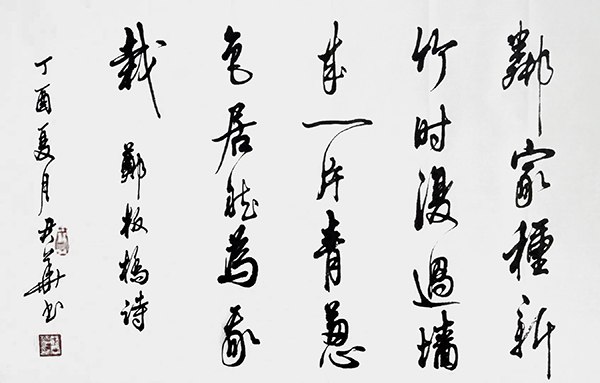 鄰家種新
竹时復過墻
來一片青蔥
色居然為我
栽
鄭板橋詩
丁酉夏月華书